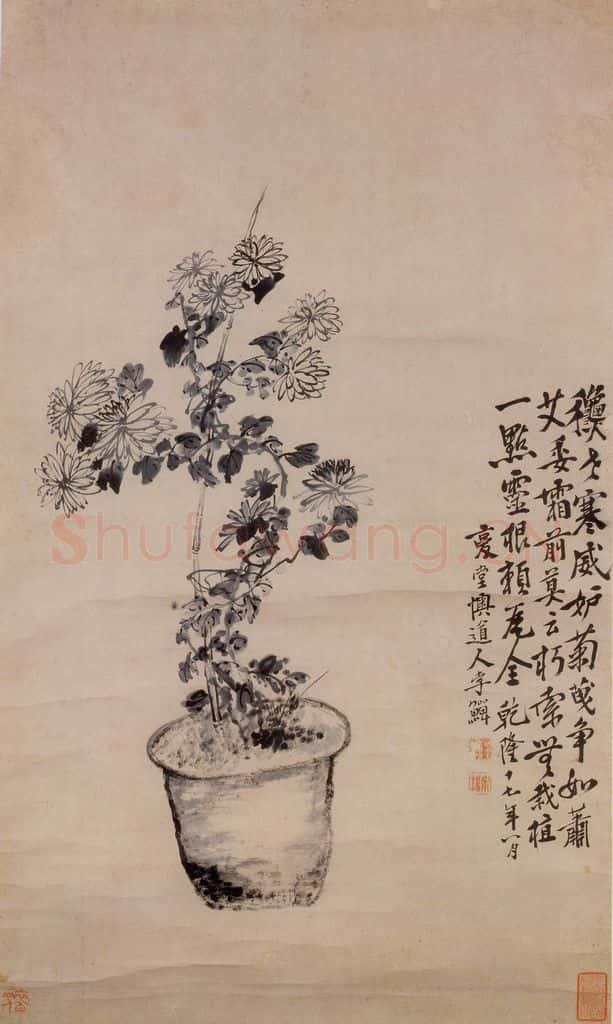 龝老寒威妒菊爭如蕭
艾委霜前莫云朽索無栽植
一點靈根賴瓦全 乾隆十七年八月
復堂懊道人李鱓
Shufawang.CN